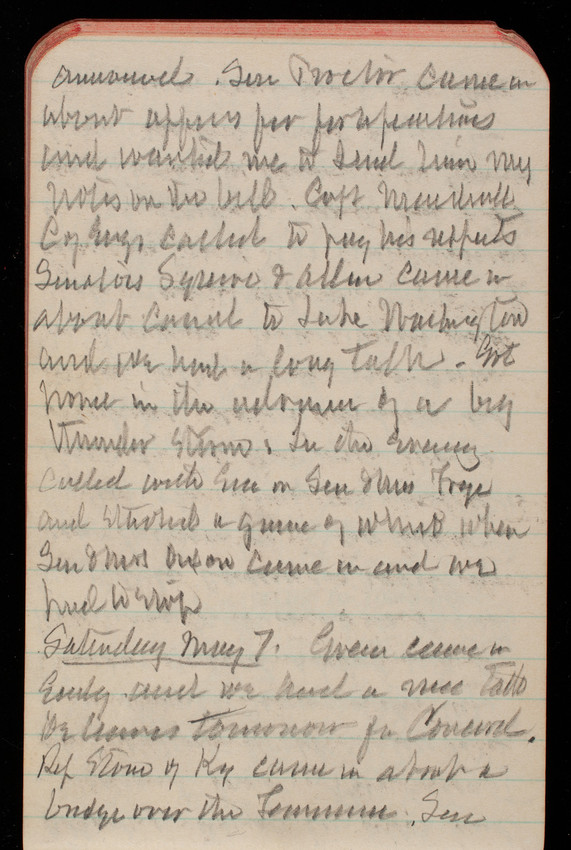 announced. Sen Proctor came in
about appns for fortifications
and wanted me to send him my
notes on the bill. Capt
Cp Engs called to pay his respects
Senators Squire & Allen came in
about canal to Lake Washington
and we had a long talk. Got
home in the of a big
thunder storm. In the evening
called with on Sen & Mrs Frye
and started a game of whist when
Sen & Mrs Dixon came in and we
had to stop
Saturday May 7. came in
Early and we had a nice talk
He leaves tomorrow for Concord.
Rep Stone of Ky came in about a
bridge over the . Sen